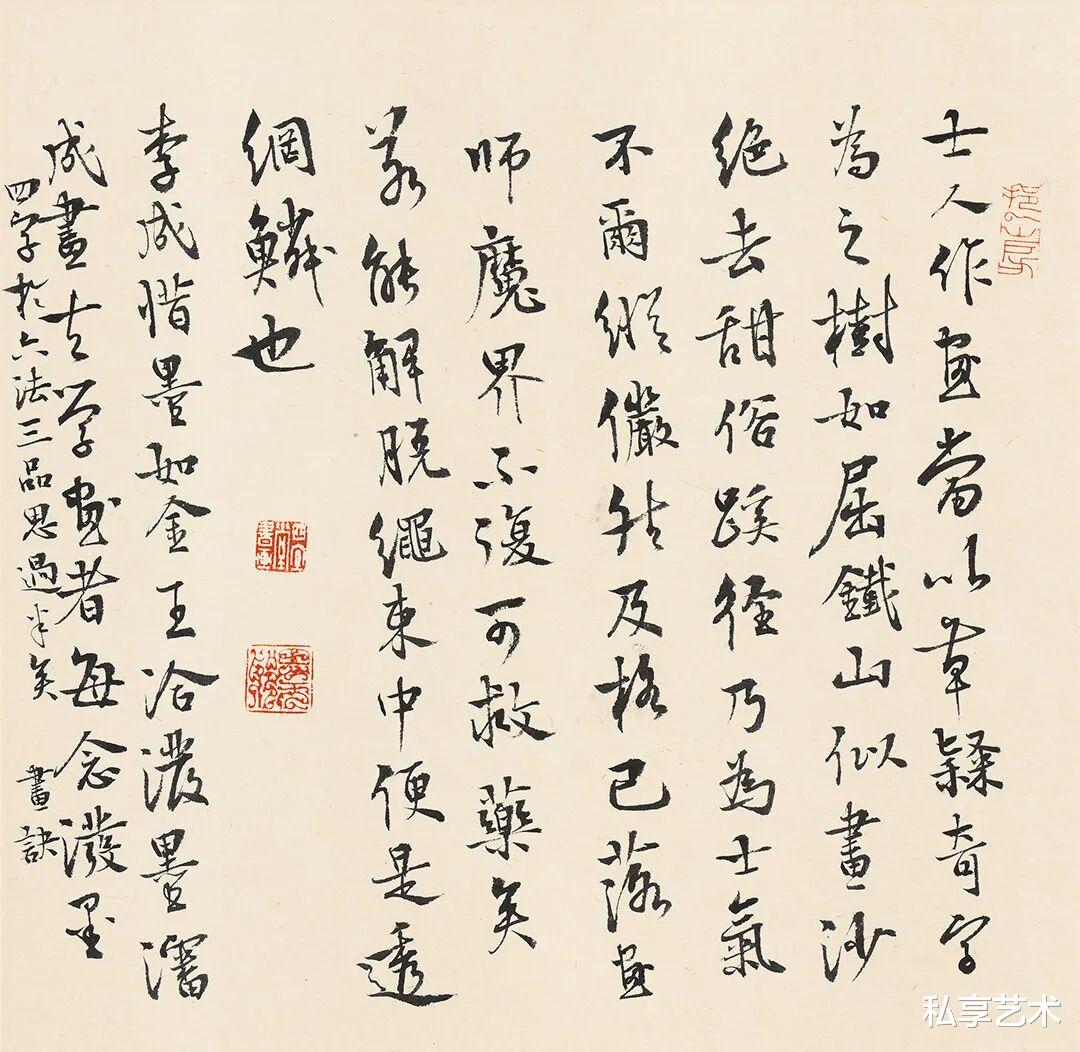 士人作画當以草隸奇字
為之樹如屈鐵山似畫沙
絕去甜俗蹊徑乃為士氣
不爾縱儼然及格已落画
師魔界不復可救藥矣
若能解脫繩束中便是透
網鱗也
李成惜墨如金王洽潑墨瀋
成畫夫學画者每念潑墨
四字於六法三品思過半矣 畫訣
私享艺术